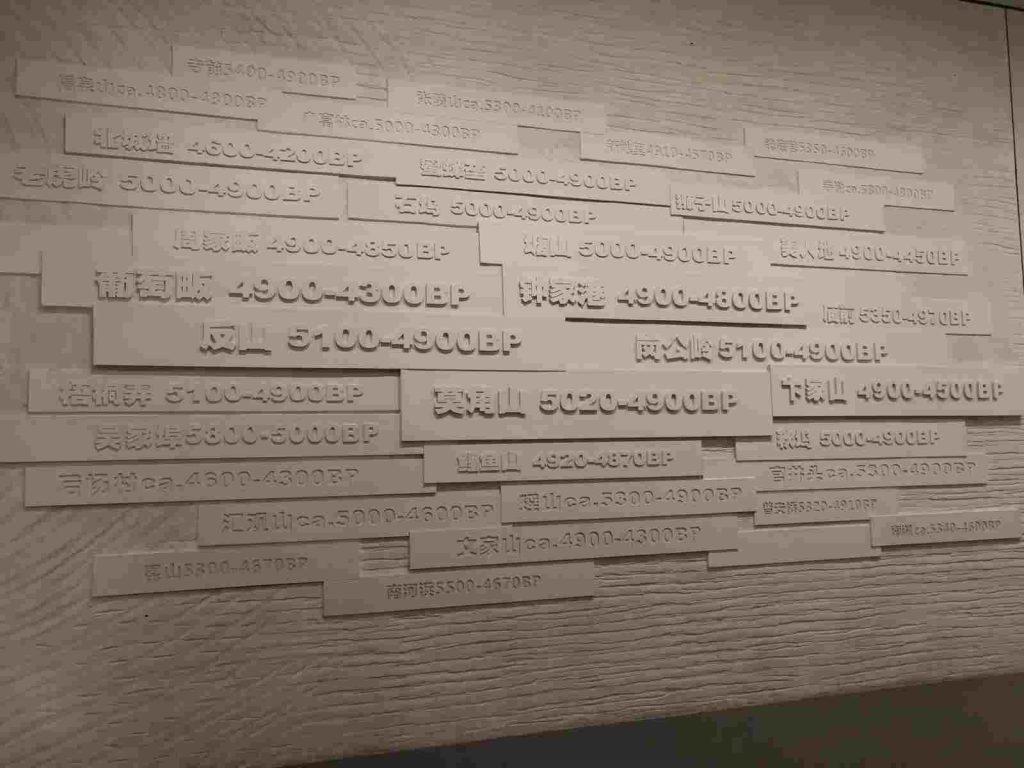 寺前5400-4900BP
ca.4800-4300BP
张陵山ca.5300-4100BP
广富林ca.5000-4300BP
北城墙 4600-4200BP
蜜蜂垄 5000-4900BP
老虎岭 5000-4900BP
石坞 5000-4900BP
狮子山5000-4900BP
周家畈 4900-4850BP
塘山 5000-4900BP
美人地 4900-4450BP
葡萄畈 4900-4300BP
钟家港 4900-4300BP
庙前 5350-4970BP
反山 5100-4900BP
岗公岭5100-4900BP
梧桐弄 5100-4900BP
莫角山 5020-4900BP
卞家山 4900-4500BP
吴家埠5800-5000BP
鲤鱼山 4920-4870BP
秋坞 5000-4900BP
ca.4600-4300BP
瑶山ca.5300-4900BP
官井头ca.5300-4900BP
汇观山ca.5000-4600BP
普安桥5320-4910BP
文家山ca.4900-4300BP
5300-4670BP
南河浜5500-4670BP